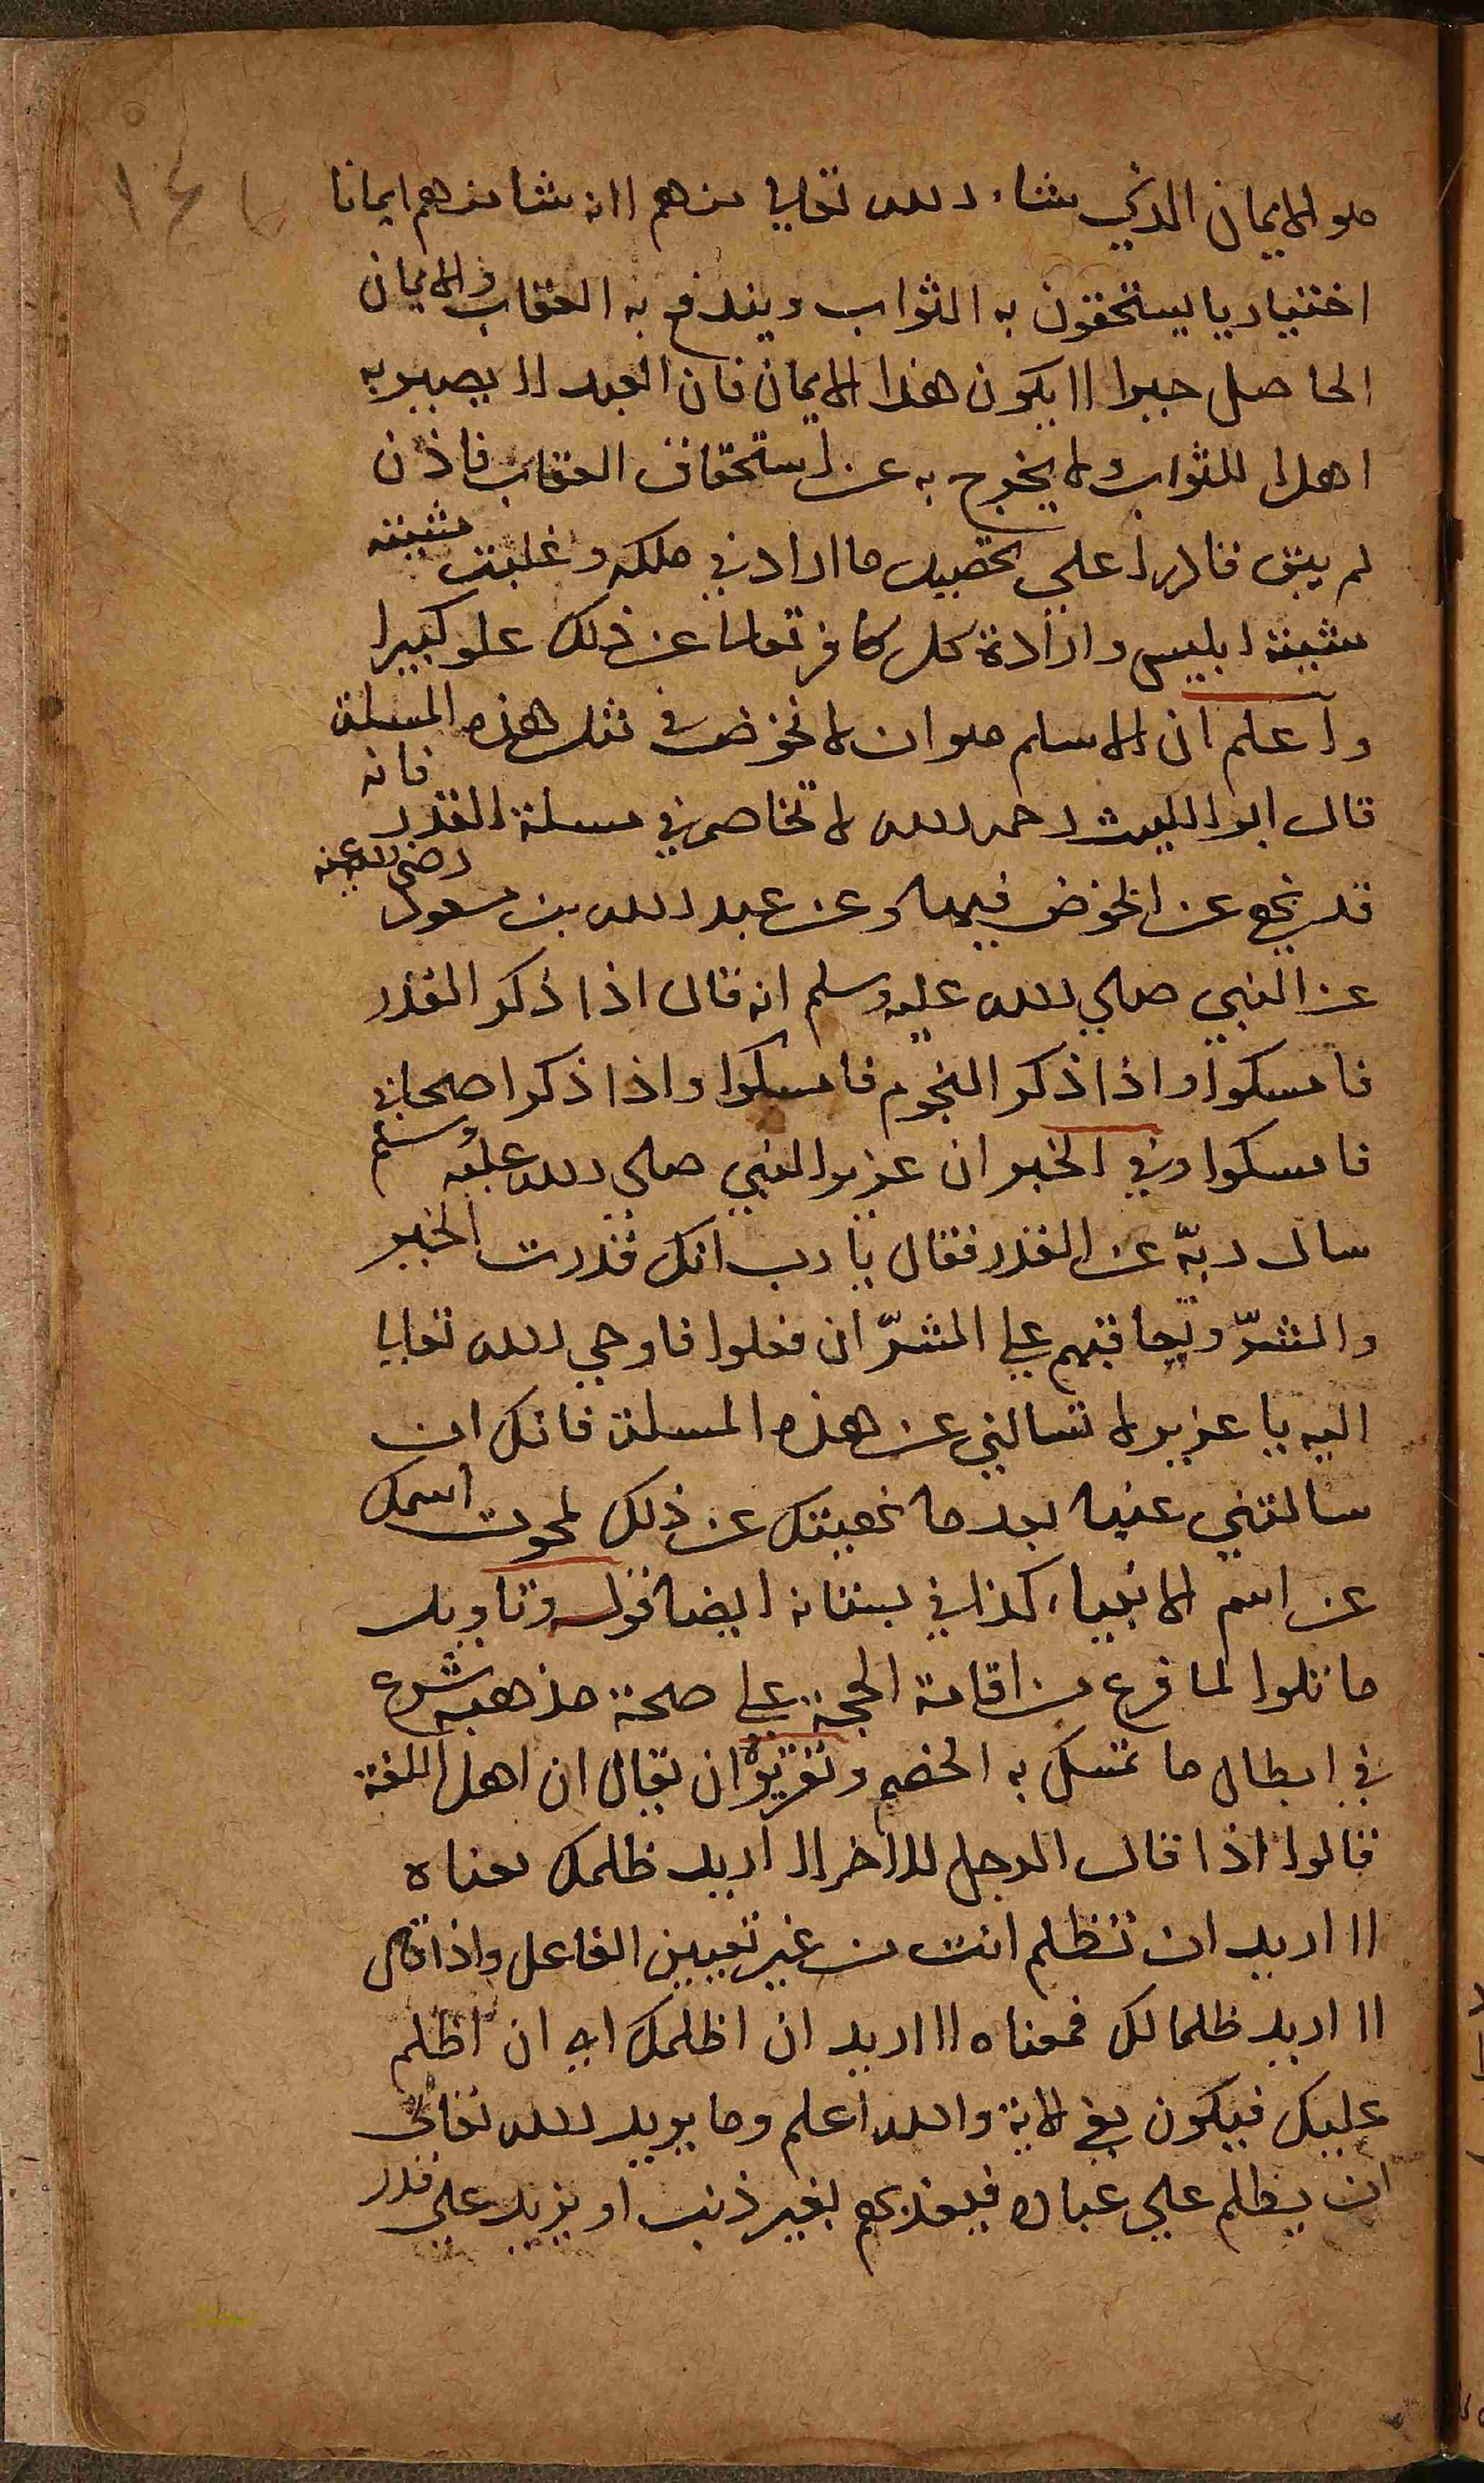 ١٤٨
هو الايمان الذي شاء الله تعالي منهم اانه شا منهم ايمانا
اختياريا يستحقون به الثواب ويندفع به العقاب والايمان
الحاصل جبرا لا يكون هذا الايمان فان العبد لا يصير به
اهلا للثواب ولا يخرج به عن استحقاق العقاب فاذن
لم يبق قادرا علي تحصيل ما اراد في ملكه وغلبت مشيته
مشيته ابليس وارادة كل كافر تعالا عن ذلك علو كبيرا
واعلم ان الاسلم هو ان لا نخوض في مثل هذه المسلة
قال ابو الليث رحمه الله لا تخاصم في مسلة القدر فانه
قد نهي عن الخوض فيها وعن عبد الله بن مسعود رضي الله عنه
عن النبي صلي الله عليه وسلم انه قال اذا ذكر القدر
فامسكوا واذا ذكر النجوم فامسكوا واذا ذكر اصحابي
فامسكوا وفي الخبر ان عزير النبي صلي الله عليه وسلم
سال ربّه عن القدر فقال يا رب انك قدرت الخير
والشرّ وتعاقبهم علي الشرّ ان فعلوا فاوحي الله تعالي
اليه يا عزير لا تسالني عن هذه المسلة فانك ان
سالتني عنها بعد ما نهيتك عن ذلك لمحوت اسمك
عن اسم الانبياء كذا في بستانه ايضا قوله وتاويل
ما تلوا لما فرغ من اقامة الحجة علي صحة مذهبه شرع
في ابطال ما تمسك به الخصم وتقريره ان يقال ان اهل اللغة
قالوا اذا قال الرجل للاخر لا اريد ظلمك معناه
لا اريد ان تظلم انت من غير تعيين الفاعل واذا قال
لا اريد ظلما لك فمعناه لا اريد ان اظلمك اي ان اظلم
عليك فيكون في الاية والله اعلم وما يريد الله تعالي
ان يظلم علي عباده فيعذبهم بغير ذنب او يزيد علي قدر